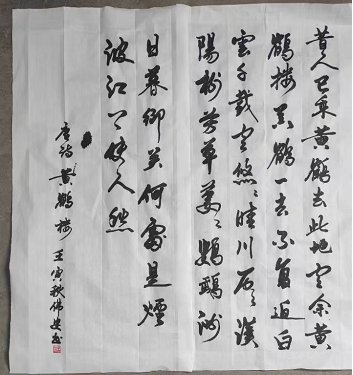 昔人已乘黄鹤去此地空余黄
鹤楼黄鹤一去不复返白
雲千载空悠悠晴川历历漢
陽树芳草萋萋鹦鹉洲
日暮鄉关何處是煙
波江上使人愁
唐诗黄鹤楼 壬寅秋佛安书